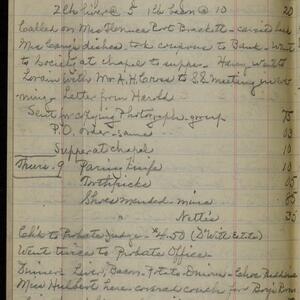 2 lb liver @ 5 1 lb bacon @ 10 20
Called on Mrs Florence Cort Brackett - carried back
Mrs Camp's dishes. took coupons to Bank. Went
to Society at chapel to supper. Henry went to
Lorain with Mr A. H. Cross to S.S. Meeting in eve
ning. Letter from Harold
Sent for copying Photographs group 75
P.O. order - same 03
Supper at chapel 10
Thurs. 9 Paring knife 10
Toothpicks 05
Shoes mended mine 85
Nettie 35
Ck to Probate Judge - $4.50 (D. Wth Estate)
Went twice to Probate Office.
Dinner Liver, Bacon - Potato
Miss Hulbert here covered couch for Boy's Room